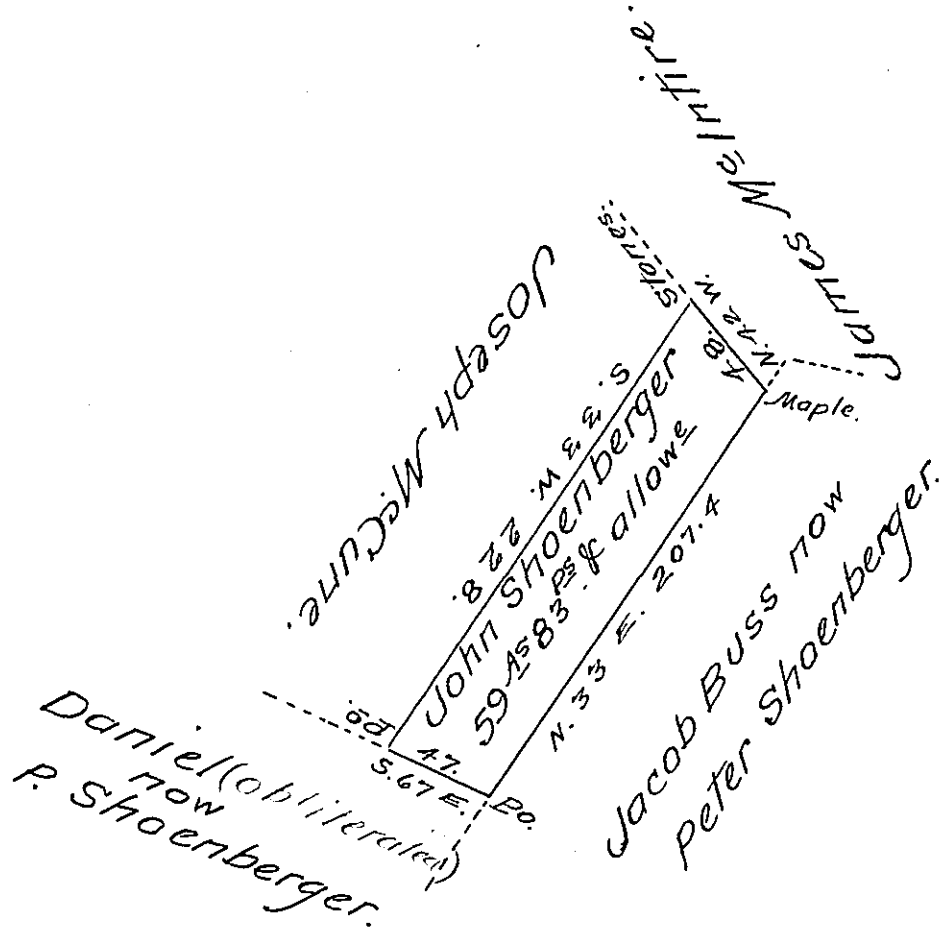 James McIntire.
Stones.
N. 42 W.
48.
Maple.
Joseph McCune.
S. 33 W. 228.
John Shoenberger
59 As 83 ps & allowe
N. 33 E. 207.4
Jacob Buss now
Peter Shoenberger.
Po.
47.
S. 67 E.
Po.
Daniel (obliterated)
now
P. Shoenberger.